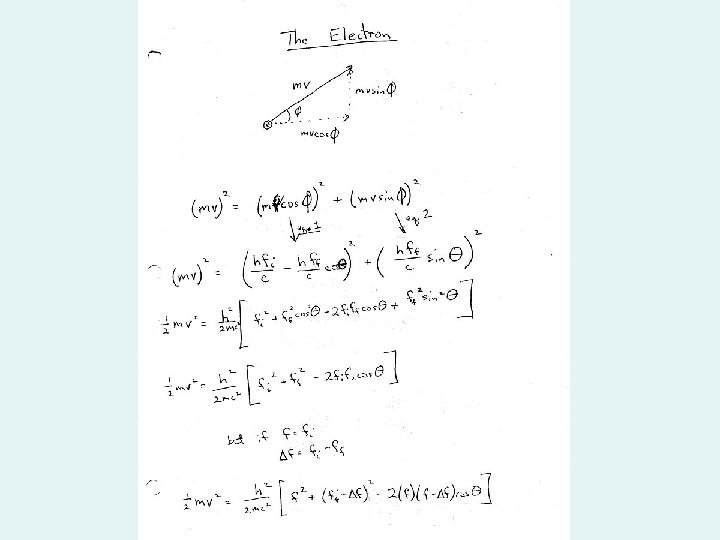 The Electron
mv
mvsinϕ
φ
mvcosϕ
(mv)² = (mvcosϕ)² + (mvsinϕ)²
eq. 2
(mv)² = (hfᵢ/c − hf_f/c cosΘ)² + (hf_f/c sinΘ)²
½mv² = h²/2mc² [fᵢ² + f_f²cos²Θ − 2fᵢf_fcosΘ + f_f²sin²Θ]
½mv² = h²/2mc² [fᵢ² + f_f² − 2fᵢf_fcosΘ]
but if f = fᵢ
Δf = fᵢ − f_f
½mv² = h²/2mc² [f² + (fᵢ−Δf)² − 2(f)(f−Δf)cosΘ]